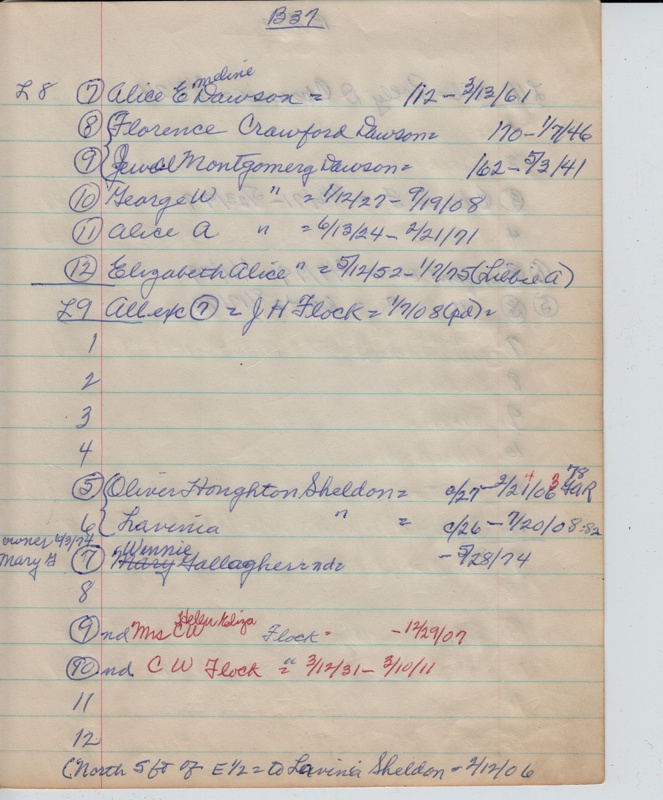 B37
L8 ⑦ Alice Emeline Dawson = /12 - 3/13/61
⑧ { Florence Crawford Dawson = 170 - 1/7/46
⑨ { Jewel Montgomery Dawson = /62 - 5/3/41
⑩ George W " = 1/12/27 - 9/19/08
⑪ Alice A " = 6/13/24 - 2/21/71
⑫ Elizabeth Alice " = 5/12/52 - 1/7/75 (Libbie A)
L9 All exc ⑦ = J H Flock = 1/7/08 (pd) =
1
2
3
4
⑤ { Oliver Houghton Sheldon = c/27 - 2/21/06 78 GAR
6 { Lavinia " = c/26 - 7/20/08 :82
owner 6/3/74
Mary G ⑦ Mary Winnie Gallagher = nd = - 5/28/74
8
⑨ nd Mrs CW Helen Eliza Flock = - 12/29/07
⑩ nd. C W Flock = " 3/12/31 - 3/10/11
11
12
(North 5 ft of E 1/2 = to Lavinia Sheldon - 2/12/06